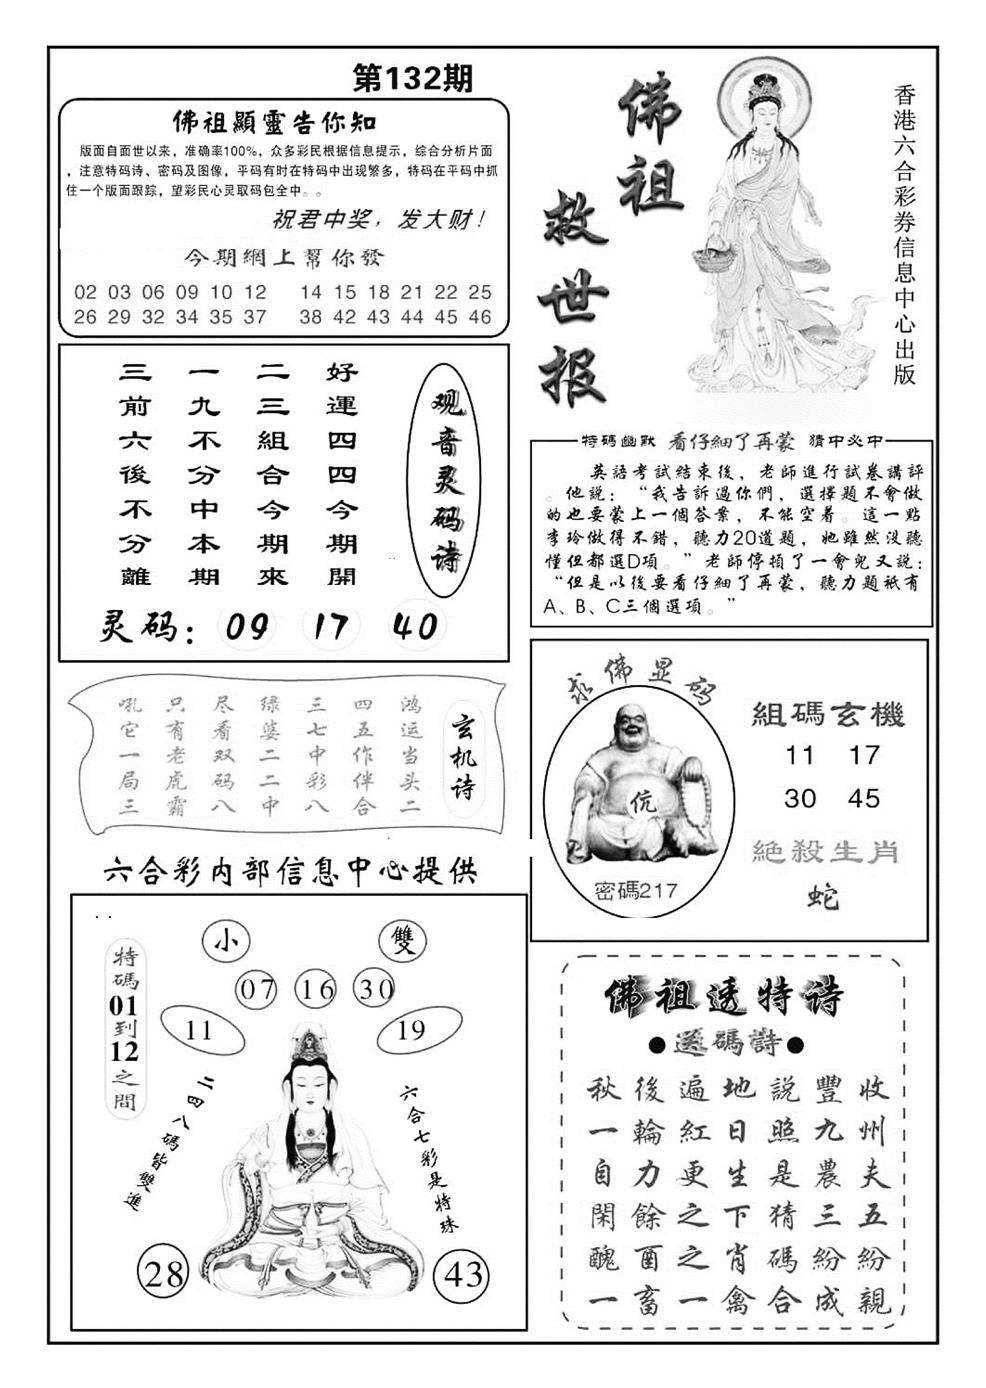 第132期
佛祖顯靈告你知
版面自面世以来，准确率100%，众多彩民根据信息提示，综合分析片面
，注意特码诗、密码及图像，平码有时在特码中出现繁多，特码在平码中抓
住一个版面跟踪，望彩民心灵取码包全中。。
祝君中奖，发大财！
今期網上幫你發
02 03 06 09 10 12 14 15 18 21 22 25
26 29 32 34 35 37 38 42 43 44 45 46
佛祖
救世报
香港六合彩券信息中心出版
观音灵码诗
好運四四今期開
二三組合今期來
一九不分中本期
三前六後不分離
灵码：09 17 40
特碼幽默 看仔細了再蒙 猜中必中
英語考試結束後，老師進行試卷講評
。他説：“我告訴過你們，選擇題不會做
的也要蒙上一個答案，不能空着。這一點
李玲做得不錯，聽力20道題，她雖然没聽
懂但都選D項。”老師停頓了一會兒又説：
“但是以後要看仔細了再蒙，聽力題衹有
A、B、C三個選項。”
玄机诗
鸿运当头二
四五作伴合
三七中彩八
绿婆二二中
尽看双码八
只有老虎霸
吼它一局三
求佛显码
伉
密碼217
組碼玄機
11 17
30 45
絕殺生肖
蛇
六合彩内部信息中心提供
小 雙
特碼01到12之間
07 16 30
11 19
二四八碼皆雙進
六合七彩是特珠
28 43
佛祖透特诗
●送碼詩●
秋後遍地説豐收
一輪紅日照九州
自力更生是農夫
閑餘之下猜三五
醜酉之肖碼紛紛
一畜一禽合成親